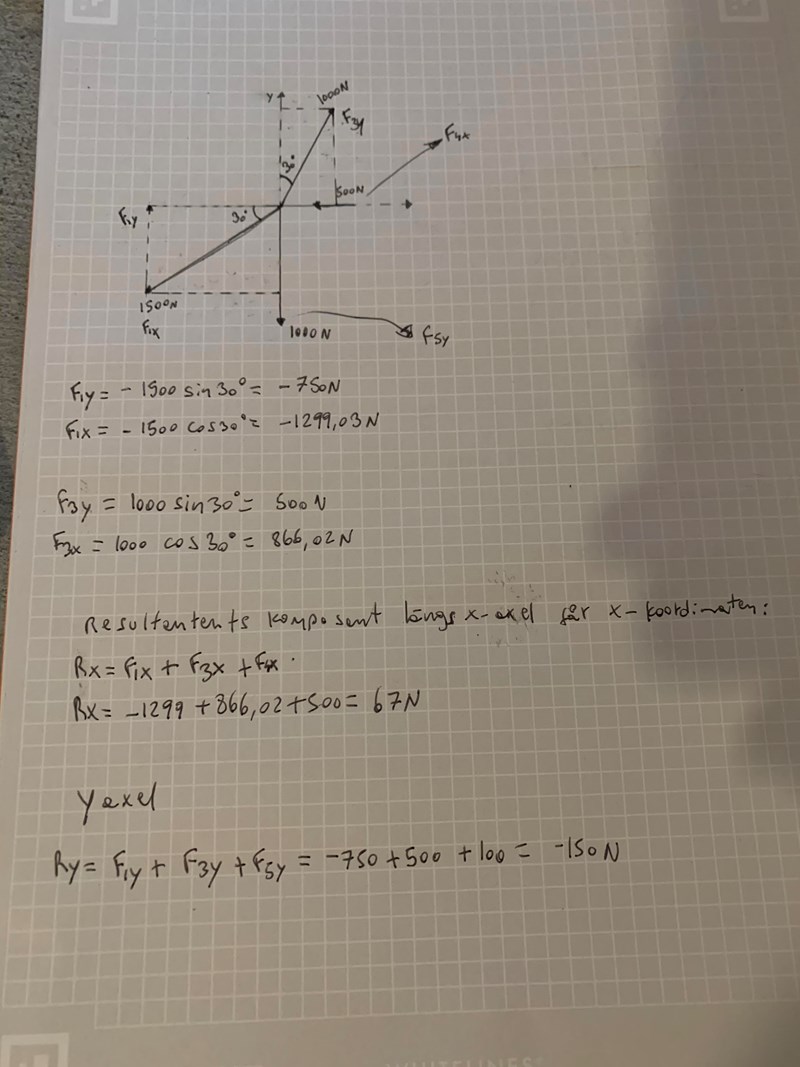 y
1000N
F3y
F4x
30°
500N
F1y
30°
1500N
F1x
1000N
F5y
F1y = - 1500 sin 30° = - 750N
F1x = - 1500 cos 30° = -1299,03 N
F3y = 1000 sin 30° = 500 N
F3x = 1000 cos 30° = 866,02 N
Resultentents komposent längs x-axel får x-koordinaten:
Rx = F1x + F3x + F4x.
Rx = -1299 + 866,02 + 500 = 67N
Y axel
Ry = F1y + F3y + F5y = -750 + 500 + 100 = -150 N
WHITELINES®